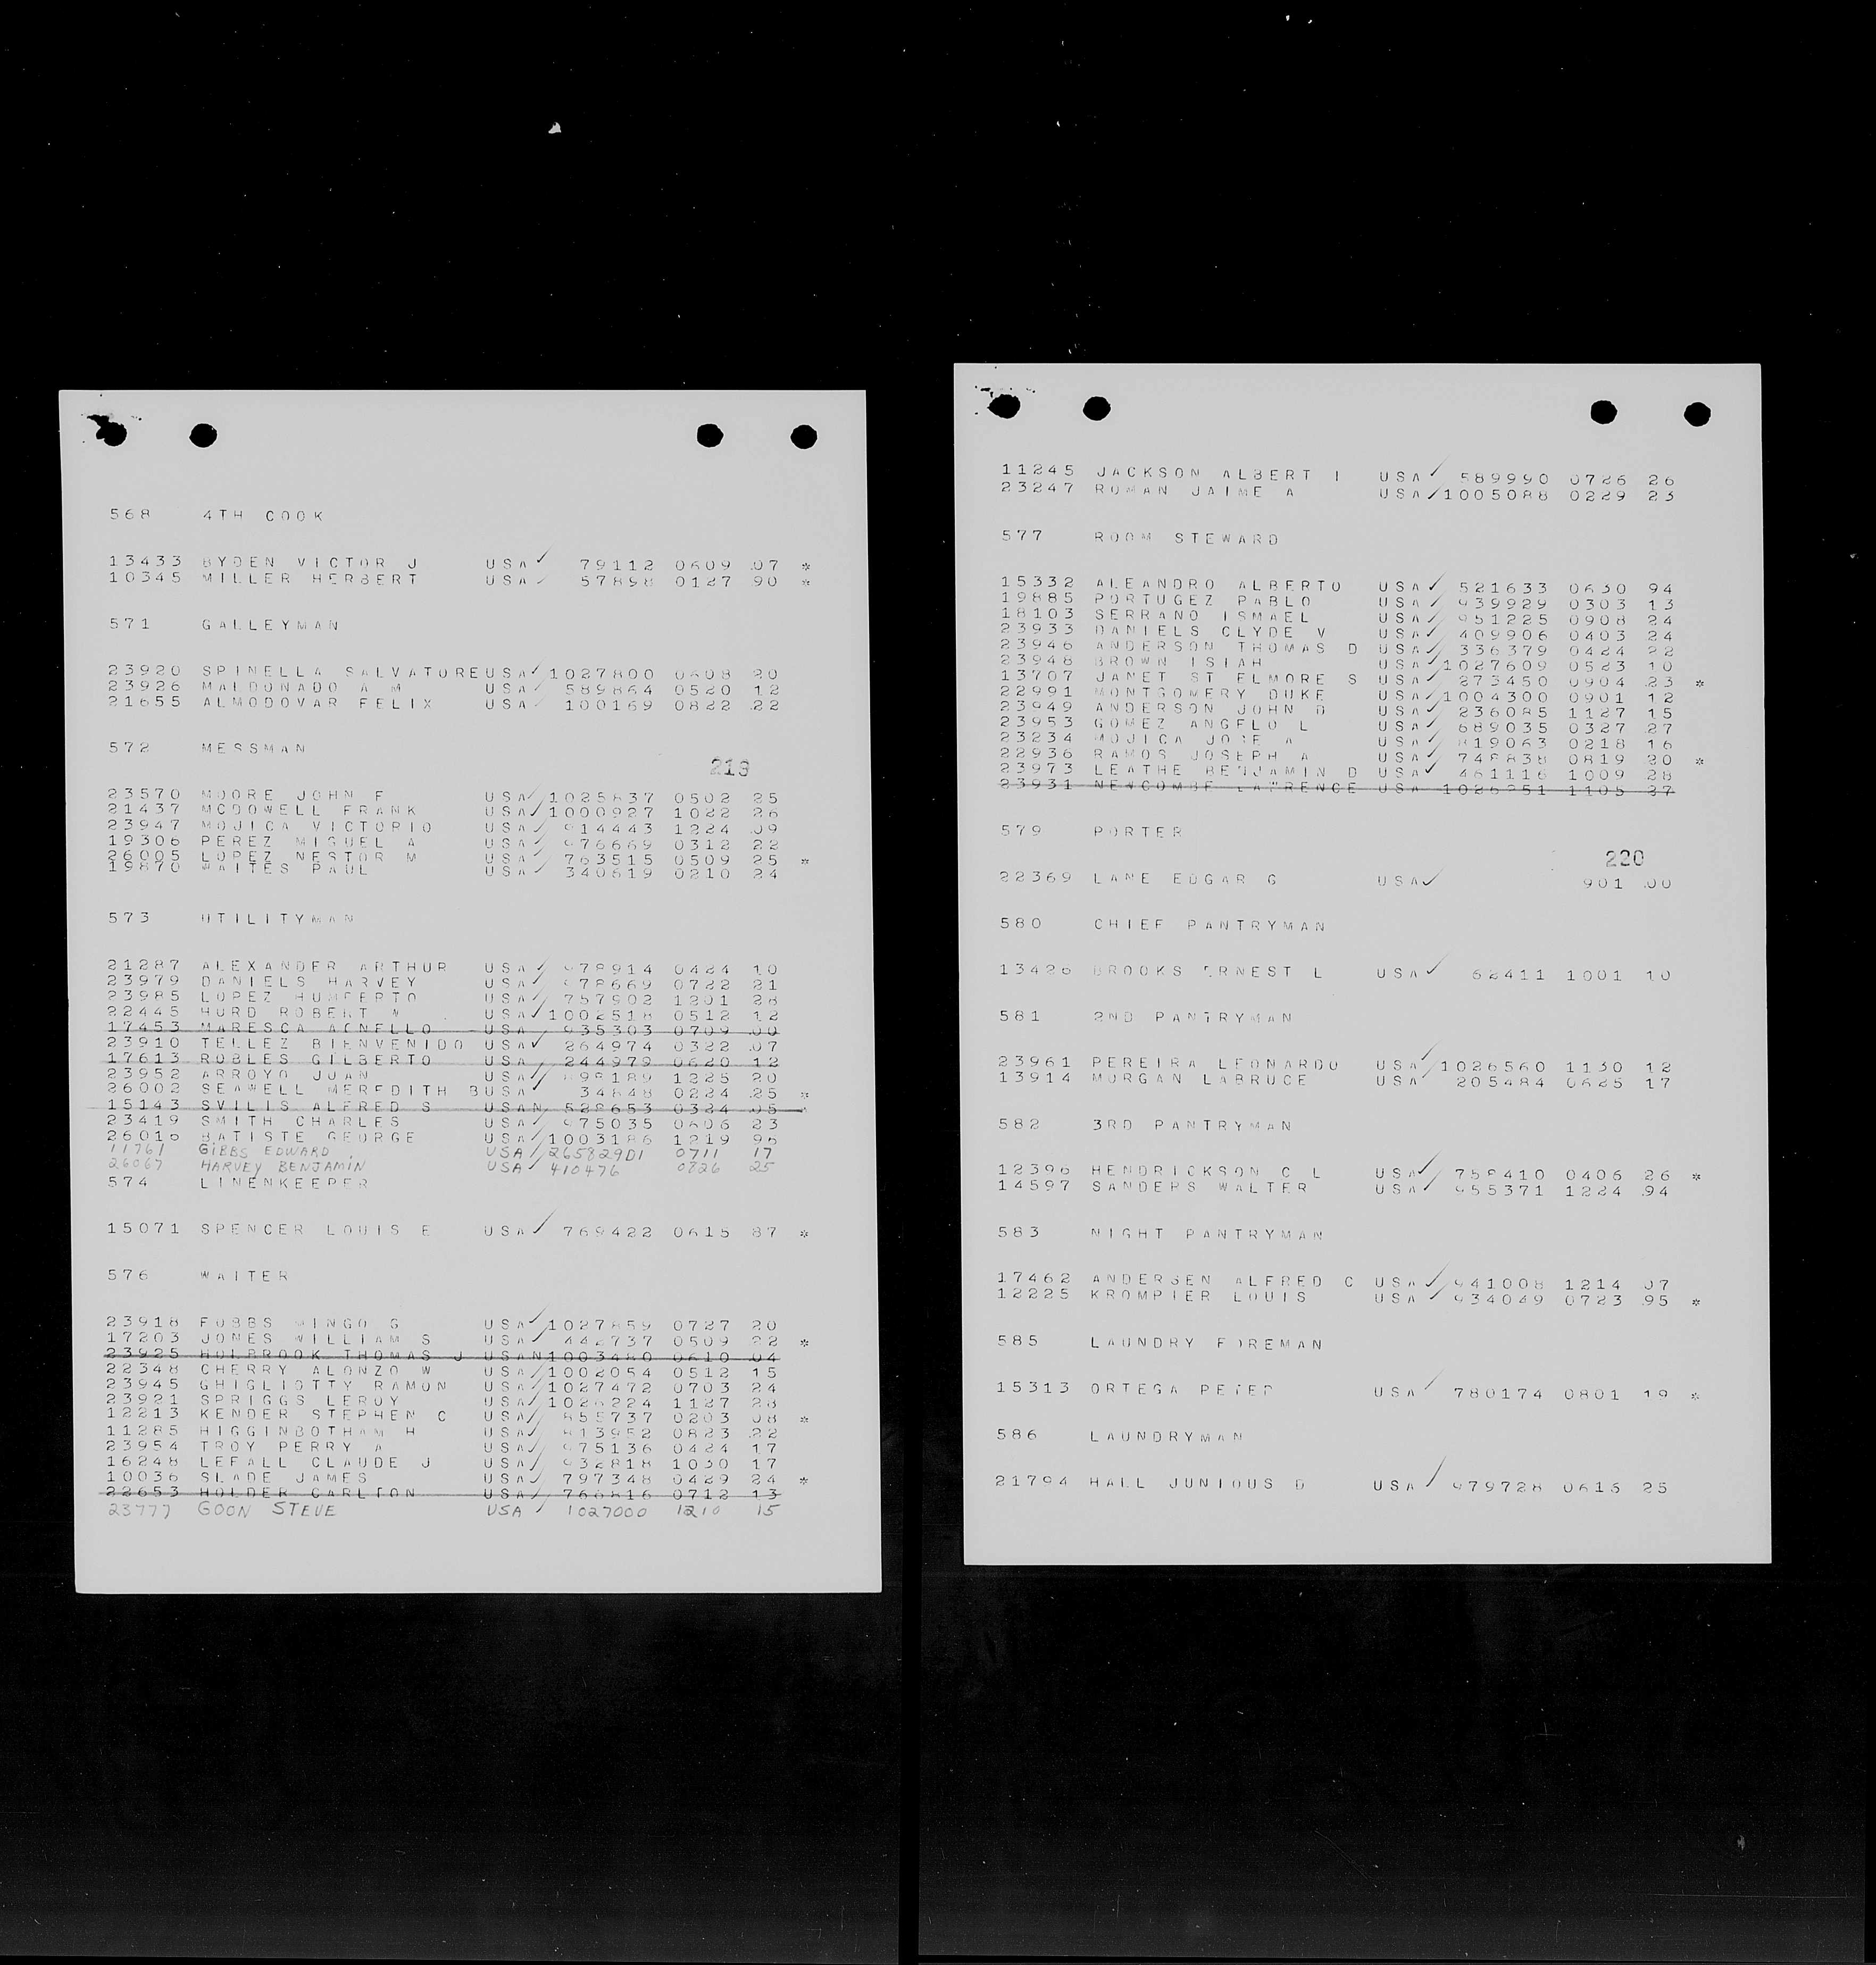 568 4TH COOK
13433 BYDEN VICTOR J USA✓ 79112 0609 07 *
10345 MILLER HERBERT USA✓ 57898 0127 90 *
571 GALLEYMAN
23920 SPINELLA SALVATORE USA✓ 1027800 0608 20
23926 MALDONADO A M USA✓ 589864 0520 12
21655 ALMODOVAR FELIX USA✓ 100169 0822 22
572 MESSMAN
219
23570 MOORE JOHN F USA✓ 1025837 0502 25
21437 MCDOWELL FRANK USA✓ 1000927 1022 26
23947 MOJICA VICTORIO USA✓ 914443 1224 09
19306 PEREZ MIGUEL A USA✓ 976669 0312 22
26005 LOPEZ NESTOR M USA✓ 763515 0509 25 *
19870 WAITES PAUL USA✓ 340619 0210 24
573 UTILITYMAN
21287 ALEXANDER ARTHUR USA✓ 978914 0424 10
23979 DANIELS HARVEY USA✓ 978669 0722 21
23985 LOPEZ HUMBERTO USA✓ 757902 1201 28
22445 HURD ROBERT W USA✓ 1002518 0512 12
17453 MARESCA AGNELLO USA 935303 0709 00
23910 TELLEZ BIENVENIDO USA✓ 264974 0322 07
17613 ROBLES GILBERTO USA 244979 0620 12
23952 ARROYO JUAN USA✓ 898189 1225 20
26002 SEAWELL MEREDITH B USA✓ 34848 0224 25 *
15143 SVILIS ALFRED S USAN 528653 0324 05 *
23419 SMITH CHARLES USA✓ 975035 0606 23
26016 BATISTE GEORGE USA✓ 1003186 1219 96
11761 GIBBS EDWARD USA✓ 265829D1 0711 17
26067 HARVEY BENJAMIN USA✓ 410476 0826 25
574 LINENKEEPER
15071 SPENCER LOUIS E USA✓ 769422 0615 87 *
576 WAITER
23918 FUBBS MINGO G USA✓ 1027859 0727 20
17203 JONES WILLIAM S USA✓ 442737 0509 22 *
23925 HOLBROOK THOMAS J USAN 1003480 0610 04
22348 CHERRY ALONZO W USA✓ 1002054 0512 15
23945 GHIGLIOTTY RAMON USA✓ 1027472 0703 24
23921 SPRIGGS LEROY USA✓ 1026224 1127 28
12213 KENDER STEPHEN C USA✓ 855737 0203 08 *
11285 HIGGINBOTHAM H USA✓ 813952 0823 22
23954 TROY PERRY A USA✓ 975136 0424 17
16248 LEFALL CLAUDE J USA✓ 932818 1030 17
10036 SLADE JAMES USA✓ 797348 0429 24 *
22653 HOLDER CARLTON USA✓ 760816 0712 13
23777 GOON STEVE USA✓ 1027000 1210 15
11245 JACKSON ALBERT I USA✓ 589990 0726 26
23247 ROMAN JAIME A USA✓ 1005088 0229 23
577 ROOM STEWARD
15332 ALEANDRO ALBERTO USA✓ 521633 0630 94
19885 PORTUGEZ PABLO USA✓ 939929 0303 13
18103 SERRANO ISMAEL USA✓ 951225 0908 24
23933 DANIELS CLYDE V USA✓ 409906 0403 24
23946 ANDERSON THOMAS D USA✓ 336379 0424 22
23948 BROWN ISIAH USA✓ 1027609 0523 10
13707 JANET ST ELMORE S USA✓ 273450 0904 23 *
22991 MONTGOMERY DUKE USA✓ 1004300 0901 12
23949 ANDERSON JOHN D USA✓ 236085 1127 15
23953 GOMEZ ANGELO L USA✓ 689035 0327 27
23234 MOJICA JOSE A USA✓ 819063 0218 16
22936 RAMOS JOSEPH A USA✓ 748838 0819 20 *
23973 LEATHE BENJAMIN D USA✓ 461116 1009 28
23931 NEWCOMBE LAWRENCE USA 1026251 1105 27
579 PORTER
220
22369 LANE EDGAR G USA✓ 901 00
580 CHIEF PANTRYMAN
13426 BROOKS ERNEST L USA✓ 62411 1001 10
581 2ND PANTRYMAN
23961 PEREIRA LEONARDO USA✓ 1026560 1130 12
13914 MORGAN LABRUCE USA✓ 205484 0625 17
582 3RD PANTRYMAN
12396 HENDRICKSON C L USA✓ 758410 0406 26 *
14597 SANDERS WALTER USA✓ 955371 1224 94
583 NIGHT PANTRYMAN
17462 ANDERSEN ALFRED C USA✓ 941008 1214 07
12225 KROMPIER LOUIS USA✓ 934049 0723 95 *
585 LAUNDRY FOREMAN
15313 ORTEGA PETER USA✓ 780174 0801 19 *
586 LAUNDRYMAN
21794 HALL JUNIOUS D USA✓ 979728 0616 25